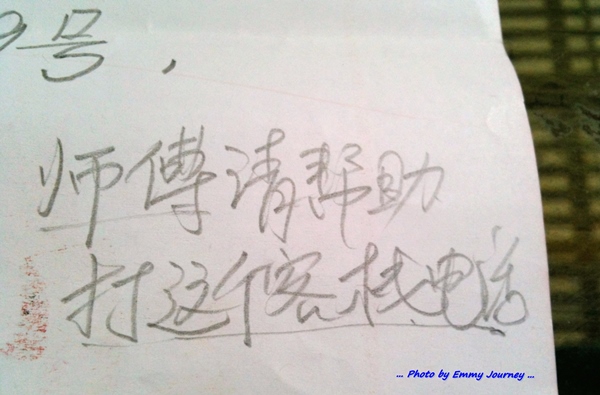 9号,
师傅请帮助
打这个客栈电话
... Photo by Emmy Journey ...